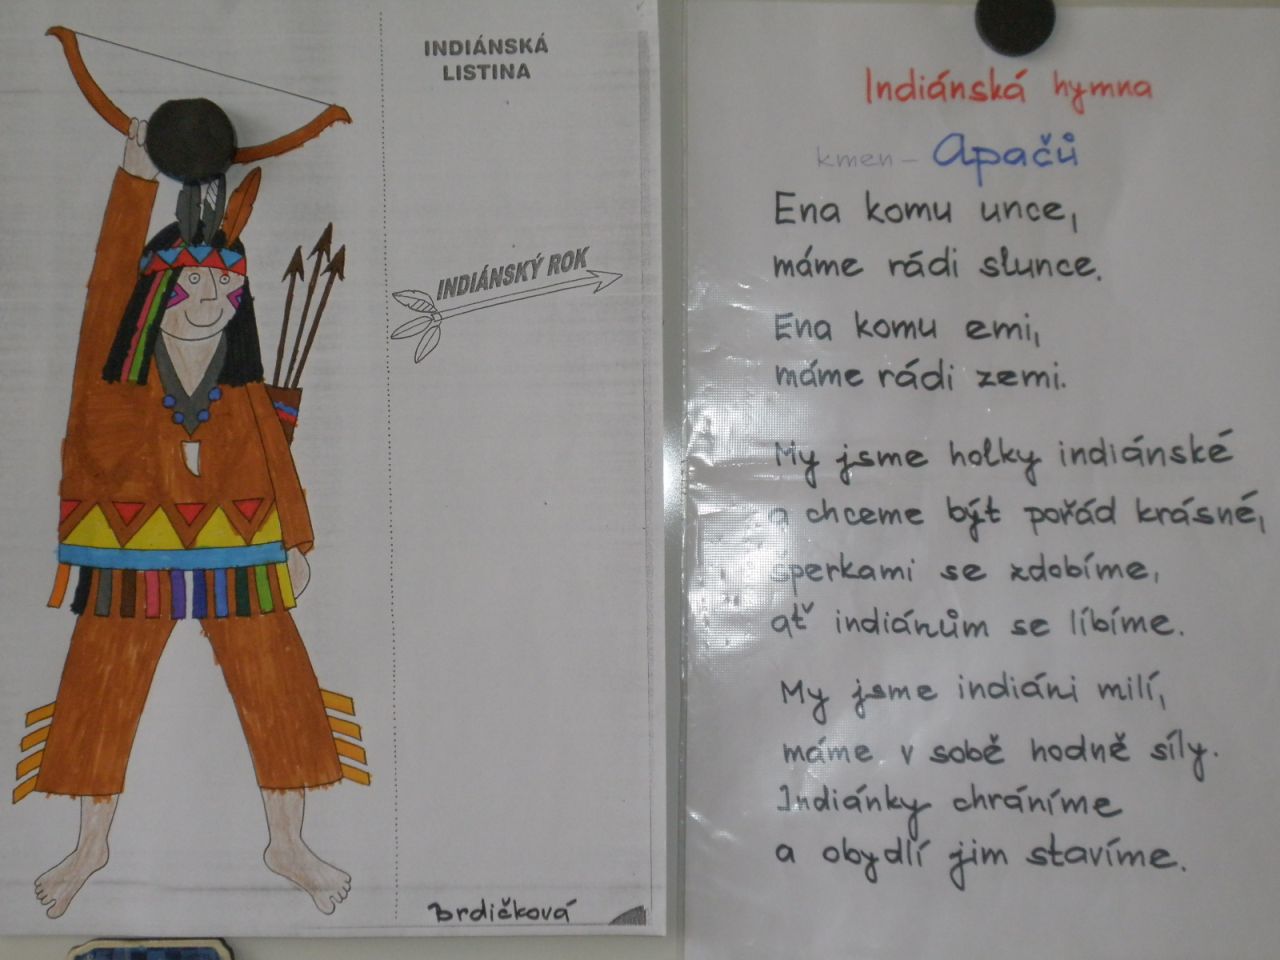 INDIÁNSKÁ
LISTINA
INDIÁNSKÝ ROK
Brdičková
Indiánská hymna
kmen – Apačů
Ena komu unce,
máme rádi slunce.
Ena komu emi,
máme rádi zemi.
My jsme holky indiánské
a chceme být pořád krásné,
šperkami se zdobíme,
ať indiánům se líbíme.
My jsme indiáni milí,
máme v sobě hodně síly.
Indiánky chráníme
a obydlí jim stavíme.